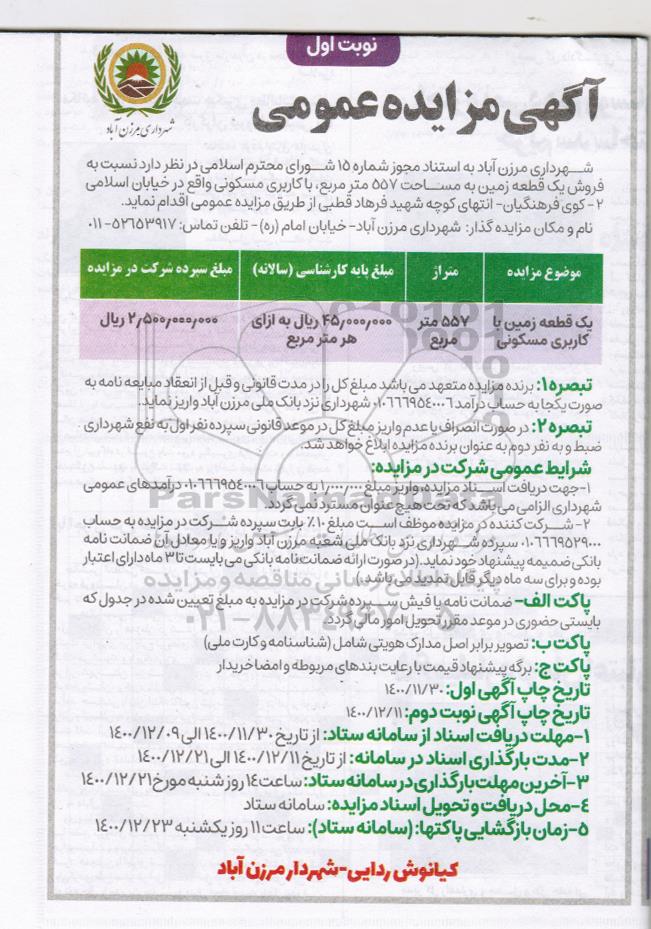 نوبت اول
شهرداری مرزن آباد
آگهی مزایده عمومی
شهرداری مرزن آباد به استناد مجوز شماره ۱۵ شورای محترم اسلامی در نظر دارد نسبت به
فروش یک قطعه زمین به مساحت ۵۵۷ متر مربع، با کاربری مسکونی واقع در خیابان اسلامی
۲- کوی فرهنگیان- انتهای کوچه شهید فرهاد قطبی از طریق مزایده عمومی اقدام نماید.
نام و مکان مزایده گذار: شهرداری مرزن آباد- خیابان امام (ره)- تلفن تماس: ۵۲۶۵۳۹۱۷-۰۱۱
موضوع مزایده	متراژ	مبلغ پایه کارشناسی (سالانه)	مبلغ سپرده شرکت در مزایده
یک قطعه زمین با	۵۵۷ متر	۴۵٫۰۰۰٫۰۰۰ ریال به ازای	۲٫۵۰۰٫۰۰۰٫۰۰۰ ریال
کاربری مسکونی	مربع	هر متر مربع
تبصره ۱: برنده مزایده متعهد می باشد مبلغ کل را در مدت قانونی و قبل از انعقاد مبایعه نامه به
صورت یکجا به حساب درآمد ۰۱۰۶۶۶۹۵۴۰۰۰۶ شهرداری نزد بانک ملی مرزن آباد واریز نماید.
تبصره ۲: در صورت انصراف یا عدم واریز مبلغ کل در موعد قانونی سپرده نفر اول به نفع شهرداری
ضبط و به نفر دوم به عنوان برنده مزایده ابلاغ خواهد شد.
شرایط عمومی شرکت در مزایده:
۱-جهت دریافت اسناد مزایده واریز مبلغ ۱٫۰۰۰٫۰۰۰ به حساب ۰۱۰۶۶۶۹۵۴۰۰۰۶ درآمدهای عمومی
شهرداری الزامی می باشد که تحت هیچ عنوان مسترد نمی گردد.
۲- شرکت کننده در مزایده موظف است مبلغ ۱۰٪ بابت سپرده شرکت در مزایده به حساب
۰۱۰۶۶۶۹۵۲۹۰۰۰ سپرده شهرداری نزد بانک ملی شعبه مرزن آباد واریز و یا معادل آن ضمانت نامه
بانکی ضمیمه پیشنهاد خود نماید. (در صورت ارائه ضمانت نامه بانکی می بایست تا ۳ ماه دارای اعتبار
بوده و برای سه ماه دیگر قابل تمدید می باشد.)
پاکت الف- ضمانت نامه یا فیش سپرده شرکت در مزایده به مبلغ تعیین شده در جدول که
بایستی حضوری در موعد مقرر تحویل امور مالی گردد.
پاکت ب: تصویر برابر اصل مدارک هویتی شامل (شناسنامه و کارت ملی)
پاکت ج: برگه پیشنهاد قیمت با رعایت بندهای مربوطه و امضا خریدار
تاریخ چاپ آگهی اول: ۱۴۰۰/۱۱/۳۰
تاریخ چاپ آگهی نوبت دوم: ۱۴۰۰/۱۲/۱۱
۱-مهلت دریافت اسناد از سامانه ستاد: از تاریخ ۱۴۰۰/۱۱/۳۰ الی ۱۴۰۰/۱۲/۰۹
۲-مدت بارگذاری اسناد در سامانه: از تاریخ ۱۴۰۰/۱۲/۱۱ الی ۱۴۰۰/۱۲/۲۱
۳-آخرین مهلت بارگذاری در سامانه ستاد: ساعت ۱۴ روز شنبه مورخ ۱۴۰۰/۱۲/۲۱
۴-محل دریافت و تحویل اسناد مزایده: سامانه ستاد
۵-زمان بازگشایی پاکتها: (سامانه ستاد): ساعت ۱۱ روز یکشنبه ۱۴۰۰/۱۲/۲۳
کیانوش ردایی-شهردار مرزن آباد
ParsNamadData